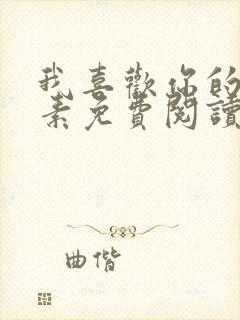 我喜歡你的
素免費閱讀
曲偕